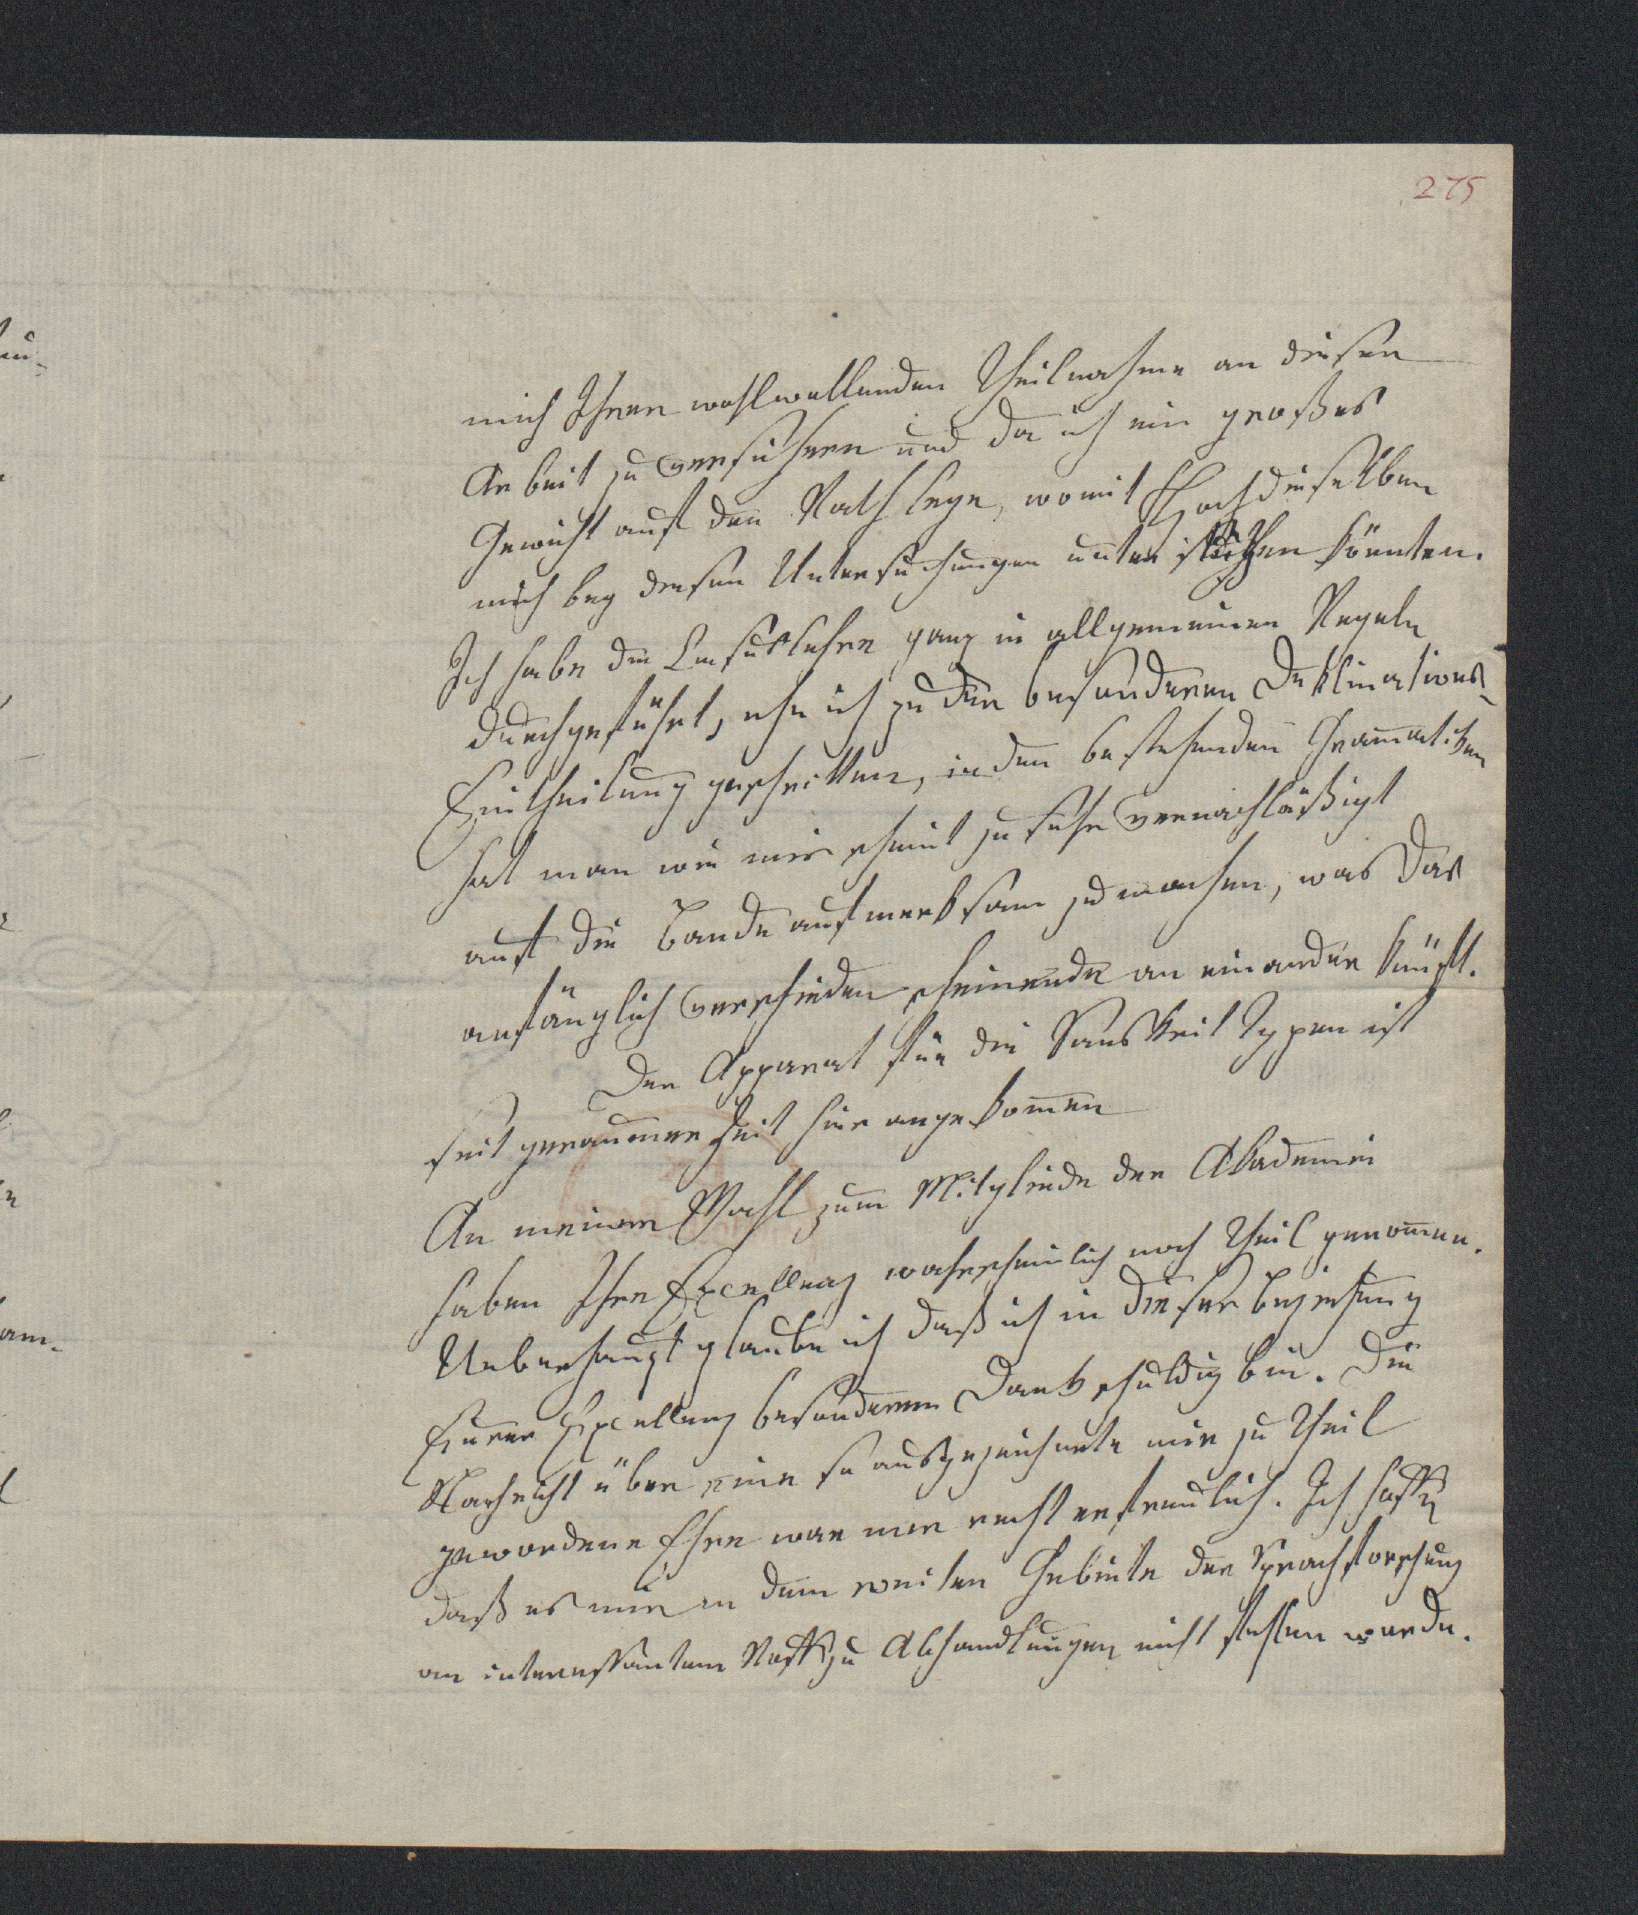 275
mich Ihrer wohlwollenden Theilnahme an diesen
Arbeit zu versichern und da ich ein großes
Gewicht auf den Rath lege, womit Hochdieselben
mich bey diesen Untersuchungen unterstützen könnten.
Ich habe die Casuslehre ganz in allgemeinen Regeln
durchgeführt, ehe ich zu der besonderen Deklinations-
Eintheilung geschritten, in den bestehenden Gram̅atiken
hat man wie mir scheint zu sehr vernachläßigt
auf die Bande aufmerksam zu machen, was das
anfänglich verschieden scheinende an einander knüpft.
Der Apparat für die Sanskrit Typen ist
seit geraumer Zeit hier angekom̅en
An meiner Wahl zum Mitgliede der Akademie
haben Ihre Excellenz wahrscheinlich noch Theil genom̅en.
Ueberhaupt glaube ich daß ich in dieser Beziehung
Eurer Excellenz besonderen Dank schuldig bin. Die
Nachricht über eine so ausgezeichnete mir zu Theil
gewordene Ehre war mir recht erfreulich. Ich hoffe
daß es mir in dem weiten Gebiete der Sprachforschung
an interessantem Stoff zu Abhandlungen nicht fehlen werde.